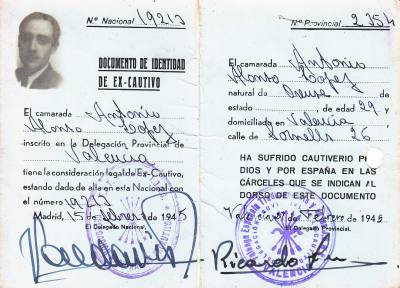 Nº Nacional 19213
DOCUMENTO DE IDENTIDAD
DE EX-CAUTIVO
El camarada Antonio
Alonso López
inscrito en la Delegación Provincial de
Valencia
tiene la consideración legal de Ex-Cautivo,
estando dado de alta en esta Nacional con
el número 19213
Madrid, 15 de febrero de 1945
El Delegado Nacional,
Nº Provincial 2354
El camarada Antonio
Alonso López
natural de Orense de
estado, de edad 29 y
domiciliado en Valencia
calle de Sornells 26
HA SUFRIDO CAUTIVERIO PO
DIOS Y POR ESPAÑA EN LAS
CÁRCELES QUE SE INDICAN AL
DORSO DE ESTE DOCUMENTO
Valencia de Febrero de 1945
El Delegado Provincial,
Ricardo
VALENCIA